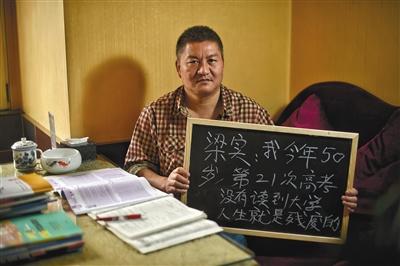 梁实:我今年50
岁 第21次高考
没有读到大学
人生就是残废的